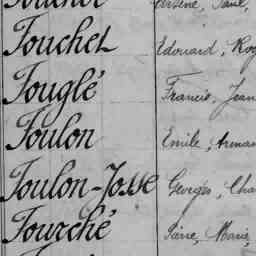 Paul,
Fouchet Edouard, Rog
Fouglé Francis, Jean
Foulon Emile, Arman
Foulon-Josse Georges, Cha
Fourché Pierre, Marie,